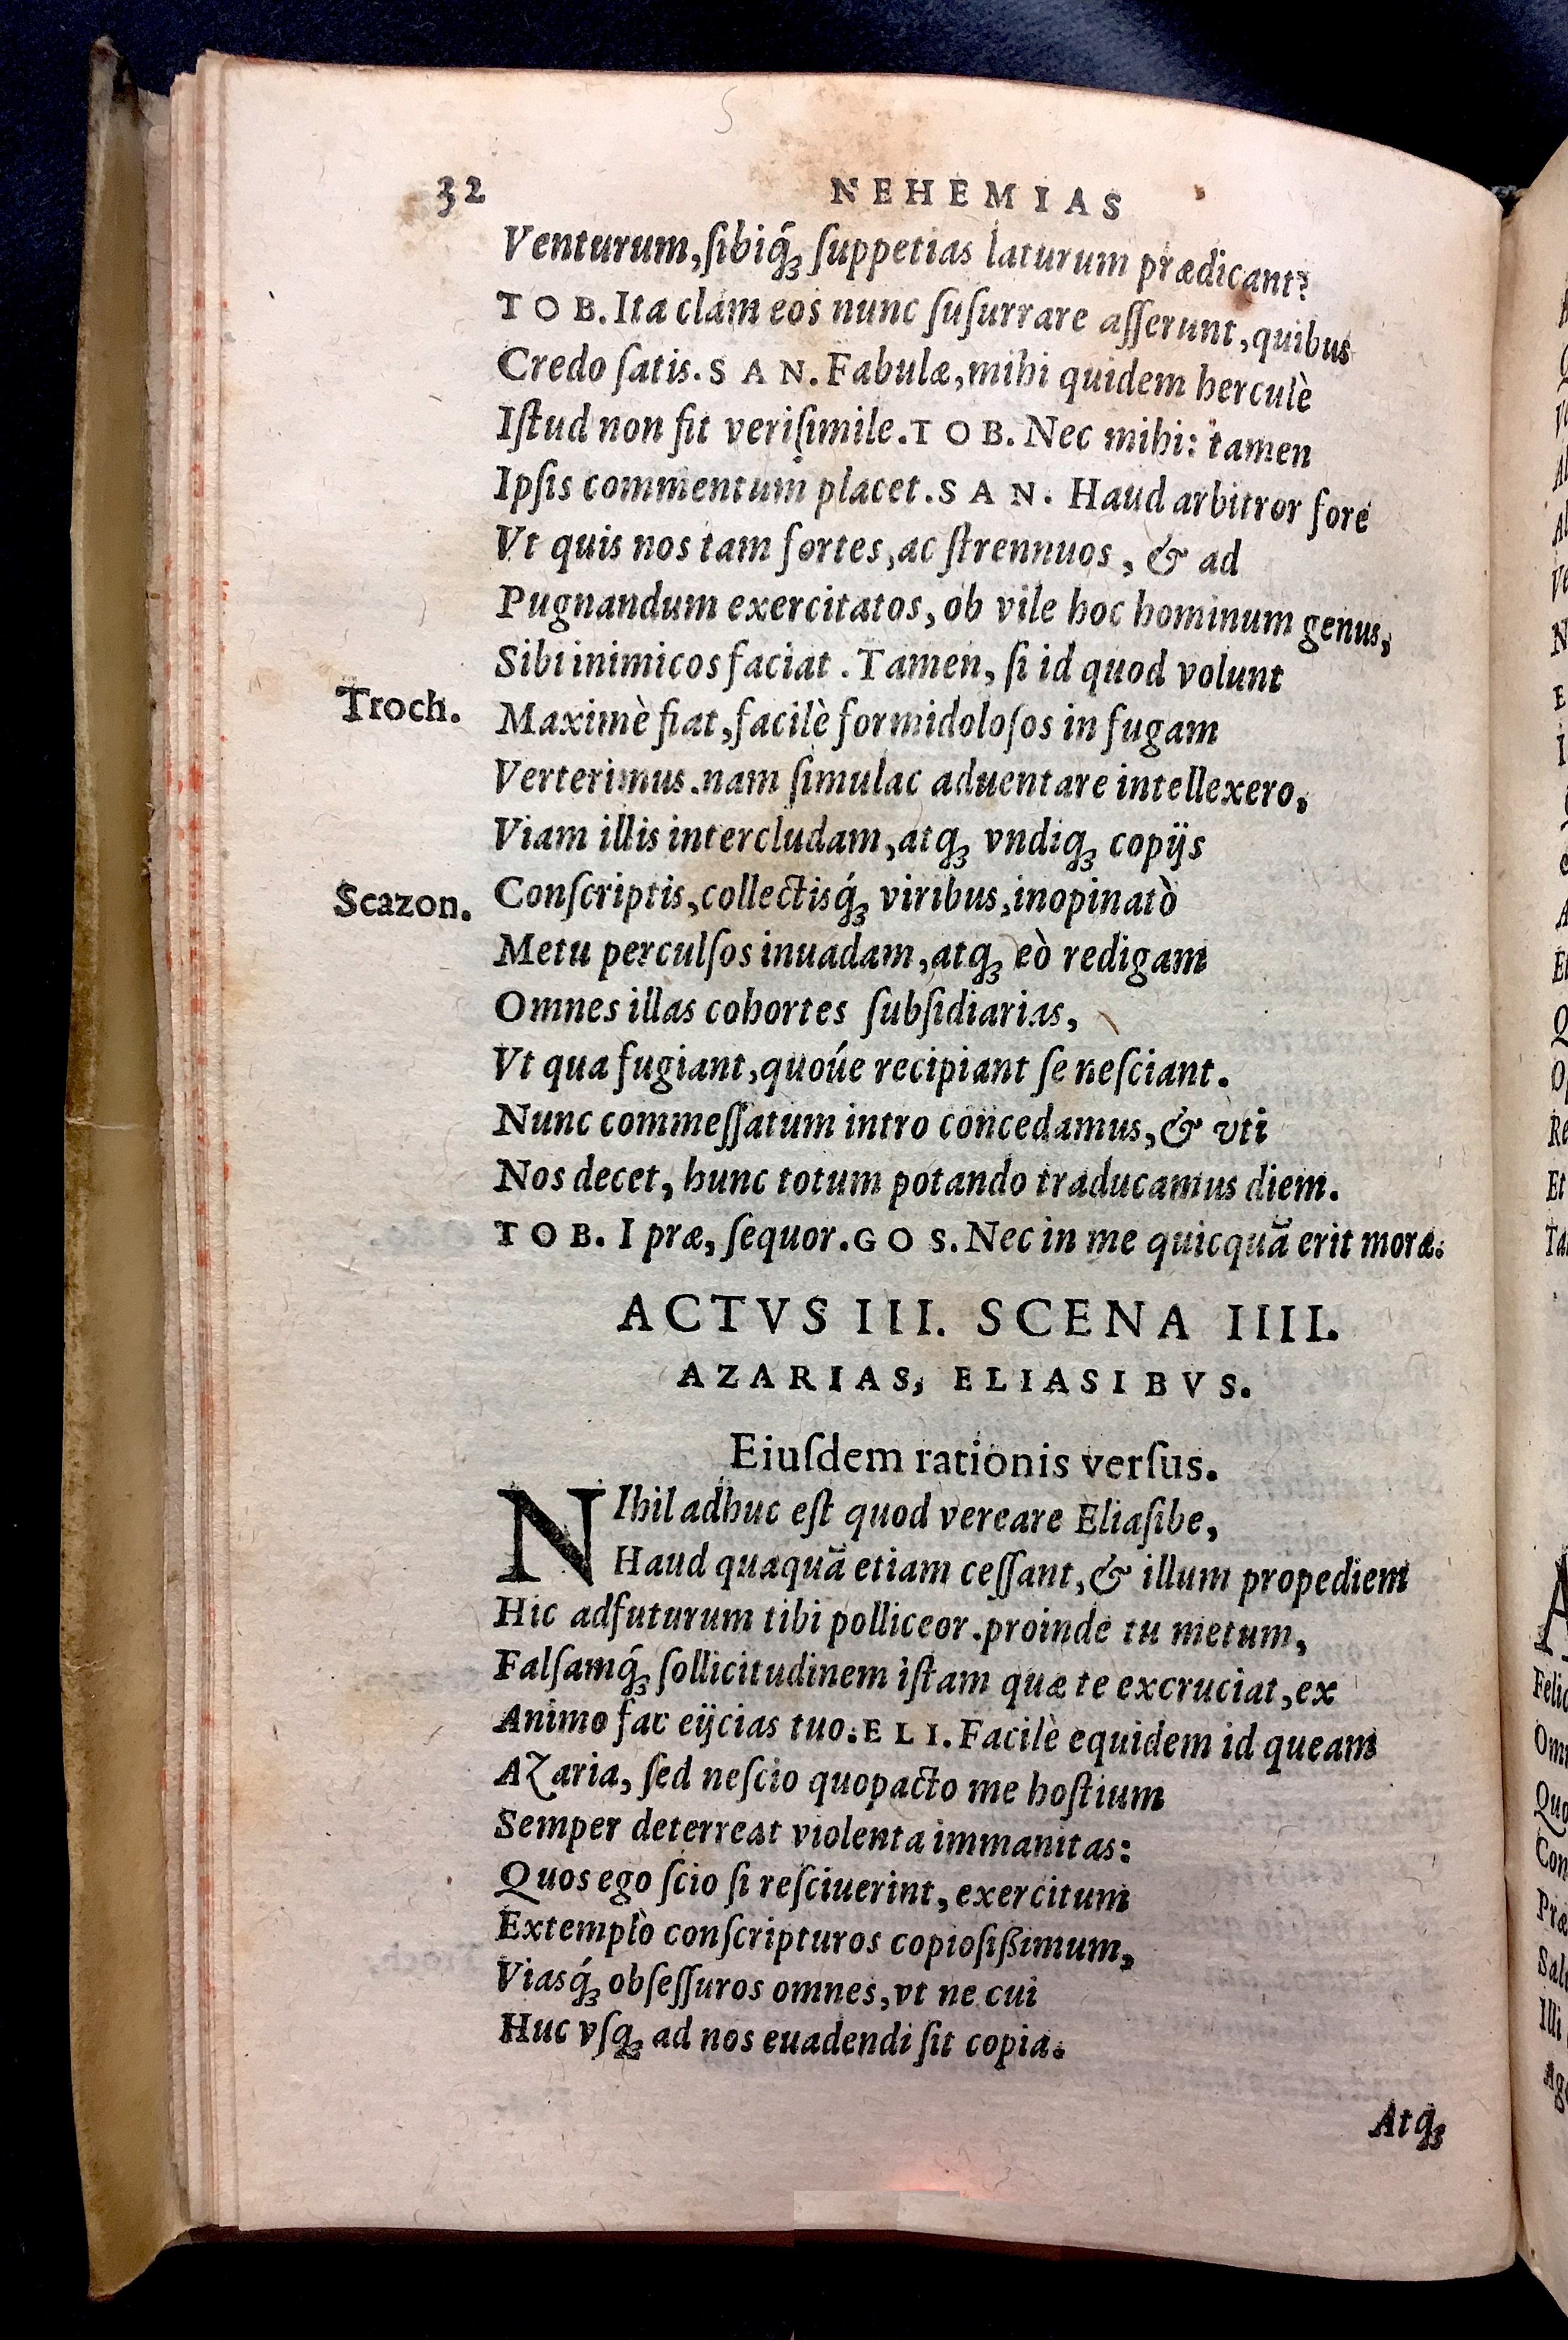 32 NEHEMIAS
Venturum,ſibiq́ꝫ ſuppetias laturum prædicant?
TOB. Ita clam eos nunc ſuſurrare aſſerunt,quibus
Credo ſatis. SAN. Fabulæ,mihi quidem herculè
Iſtud non fit veriſimile. TOB. Nec mihi: tamen
Ipſis commentum placet. SAN. Haud arbitror fore
Vt quis nos tam fortes,ac ſtrennuos, & ad
Pugnandum exercitatos, ob vile hoc hominum genus,
Sibi inimicos faciat. Tamen, ſi id quod volunt
Troch. Maximè fiat,facilè formidoloſos in fugam
Verterimus.nam ſimulac aduentare intellexero,
Viam illis intercludam,atqꝫ vndiqꝫ copijs
Scazon. Conſcriptis,collectisq́ꝫ viribus,inopinatò
Metu perculſos inuadam,atqꝫ eò redigam
Omnes illas cohortes ſubſidiarias,
Vt qua fugiant,quoúe recipiant ſe neſciant.
Nunc commeſſatum intro concedamus,& vti
Nos decet, hunc totum potando traducamus diem.
TOB. I præ, ſequor. GOS. Nec in me quicquã erit moræ.
ACTVS III. SCENA IIII.
AZARIAS, ELIASIBVS.
Eiuſdem rationis verſus.
NIhil adhuc eſt quod vereare Eliaſibe,
Haud quaquã etiam ceſſant,& illum propediem
Hic adfuturum tibi polliceor.proinde tu metum,
Falſamq́ꝫ ſollicitudinem iſtam quæ te excruciat,ex
Animo fac eijcias tuo. ELI. Facilè equidem id queam
Azaria, ſed neſcio quopacto me hoſtium
Semper deterreat violenta immanitas:
Quos ego ſcio ſi reſciuerint, exercitum
Extemplò conſcripturos copioſiſſimum,
Viasq́ꝫ obſeſſuros omnes,vt ne cui
Huc vſqꝫ ad nos euadendi ſit copia.
Atqꝫ